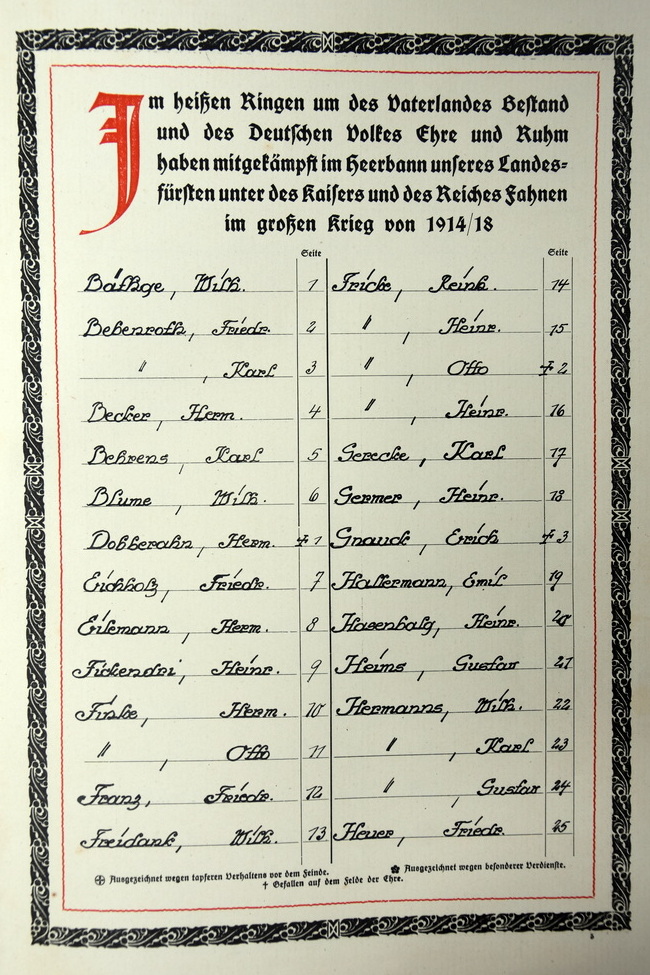 Im heißen Ringen um des Vaterlandes Bestand
und des Deutschen Volkes Ehre und Ruhm
haben mitgekämpft im Heerbann unseres Landes=
fürsten unter des Kaisers und des Reiches Fahnen
im großen Krieg von 1914/18
Seite
Bäthge, Wilh. 1
Bebenroth, Friedr. 2
" , Karl 3
Becker, Herm. 4
Behrens, Karl 5
Blume, Wilh. 6
Dobberahn, Herm. † 1
Eichholz, Friedr. 7
Eilemann, Herm. 8
Fickendri, Heinr. 9
Finke, Herm. 10
" , Otto 11
Franz, Friedr. 12
Freidank, Wilh. 13
Seite
Fricke, Reinh. 14
" , Heinr. 15
" , Otto † 2
" , Heinr. 16
Gerecke, Karl 17
Germer, Heinr. 18
Gnauck, Erich † 3
Haltermann, Emil 19
Hasenbalg, Heinr. 20
Heims, Gustav 21
Hermanns, Wilh. 22
" , Karl 23
" , Gustav 24
Heuer, Friedr. 25
Ausgezeichnet wegen tapferen Verhaltens vor dem Feinde.
Ausgezeichnet wegen besonderer Verdienste.
† Gefallen auf dem Felde der Ehre.